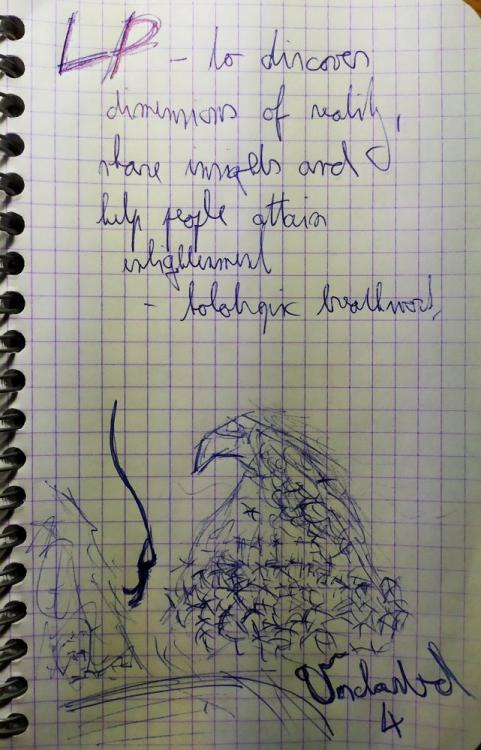 LP - to discover
dimensions of reality,
share insights and
help people attain
enlightenment
-
4